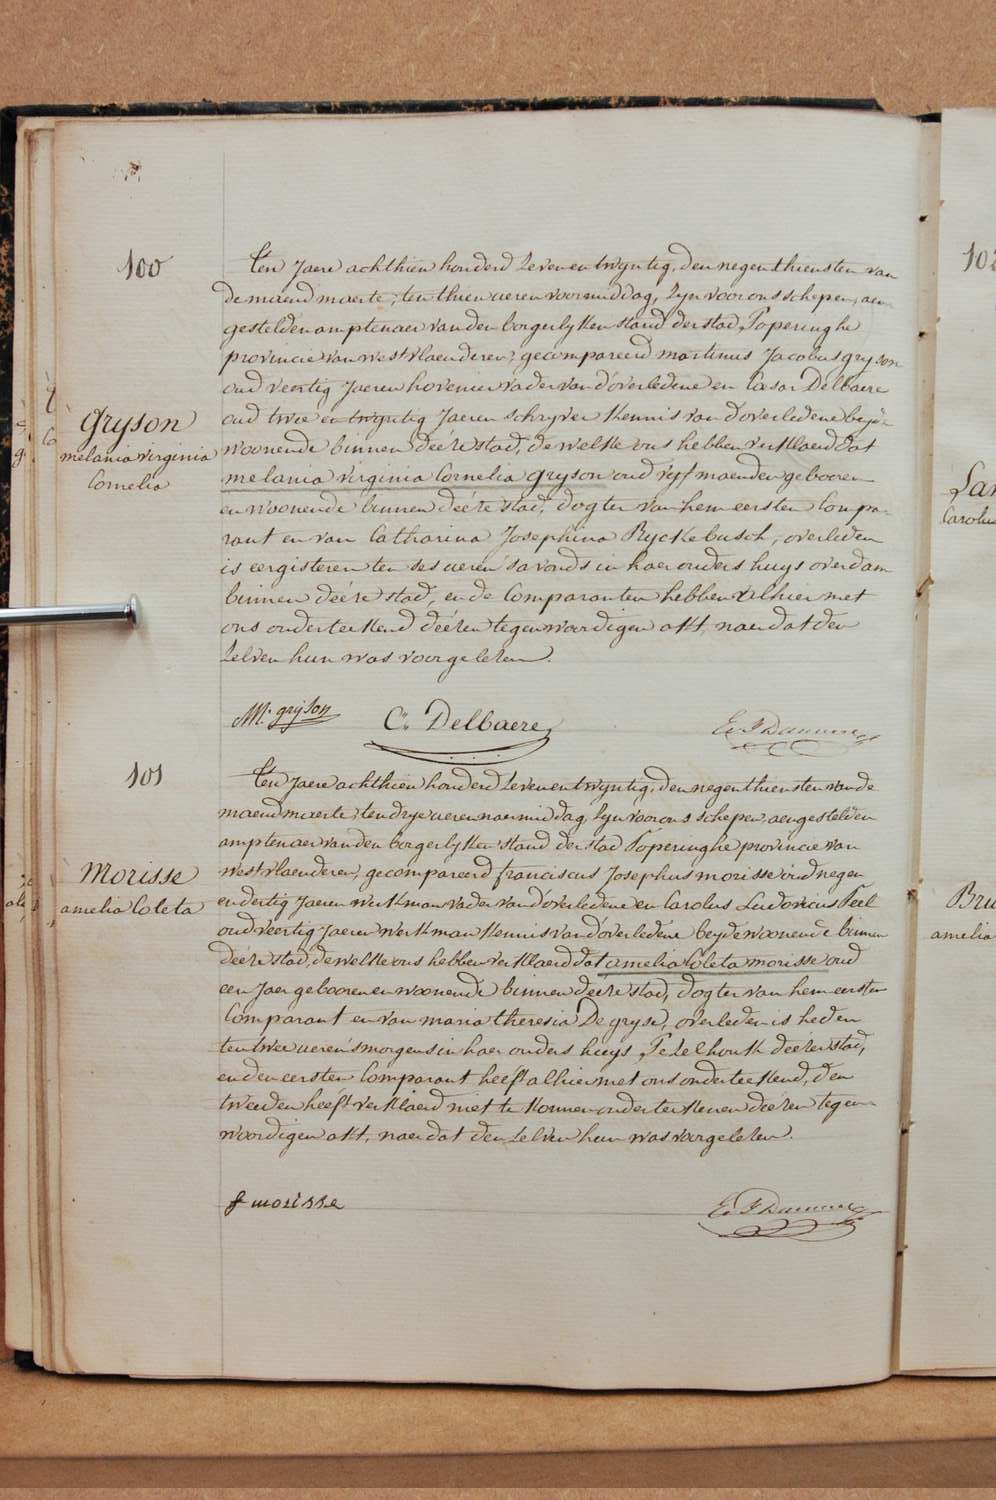 100
Gryson
melania virginia
Cornelia
Ten Jaere achthien honderd Zevenentwyntig, den negenthiensten van
de maend maerte, ten thien ueren voormiddag, Zyn voor ons schepen, aen
gestelden amptenaer van den borgerlyken stand der stad Poperinghe
provincie van westvlaenderen, gecompareerd martinus Jacobus gryson
oud veertig Jaeren hovenier vader van d'overledene en Cæsar Delbaere
oud twee en twyntig Jaeren schryver Kennis van d'overledene beyde
woonende binnen deéze stad, de welke ons hebben verklaerd dat
melania virginia Cornelia gryson oud vyf maenden gebooren
en woonende binnen deéze stad, dogter van hem eersten Compa-
rant en van Catharina Josephina Ryckebusch, overleden
is eergisteren ten ses ueren s'avonds in haer ouders huys overdam
binnen deéze stad, en de Comparanten hebben alhier met
ons onderteekend deézen tegenwoordigen akt, naer dat den
Zelven hun was voorgelezen.
M. gryson
C. Delbaere
101
Morisse
amelia Coleta
Ten Jaere achthien honderd Zevenentwyntig, den negenthiensten van de
maend maerte, ten drye ueren naermiddag Zyn voor ons schepen, aengestelden
amptenaer van den borgerlyken stand der stad Poperinghe provincie van
westvlaenderen, gecompareerd franciscus Josephus morisse oud negen
en dertig Jaeren werkman vader van d'overledene en Carolus Ludovicus Peel
oud veertig Jaeren werkman Kennis van d'overledene beyde woonende binnen
deéze stad, de welke ons hebben verklaerd dat amelia Coleta morisse oud
een Jaer gebooren en woonende binnen deéze stad, dogter van hem eersten
Comparant en van maria theresia De gryse, overleden is heden
ten twee ueren s'morgens in haer ouders huys Pezelhouk deézer stad,
en den eersten Comparant heéft alhier met ons onderteekend, den
tweeden heéft verklaerd niet te konnen onderteekenen deézen tegen-
woordigen akt, naer dat den Zelven hun was voorgelezen.
f morisse
102
Bru
amelia